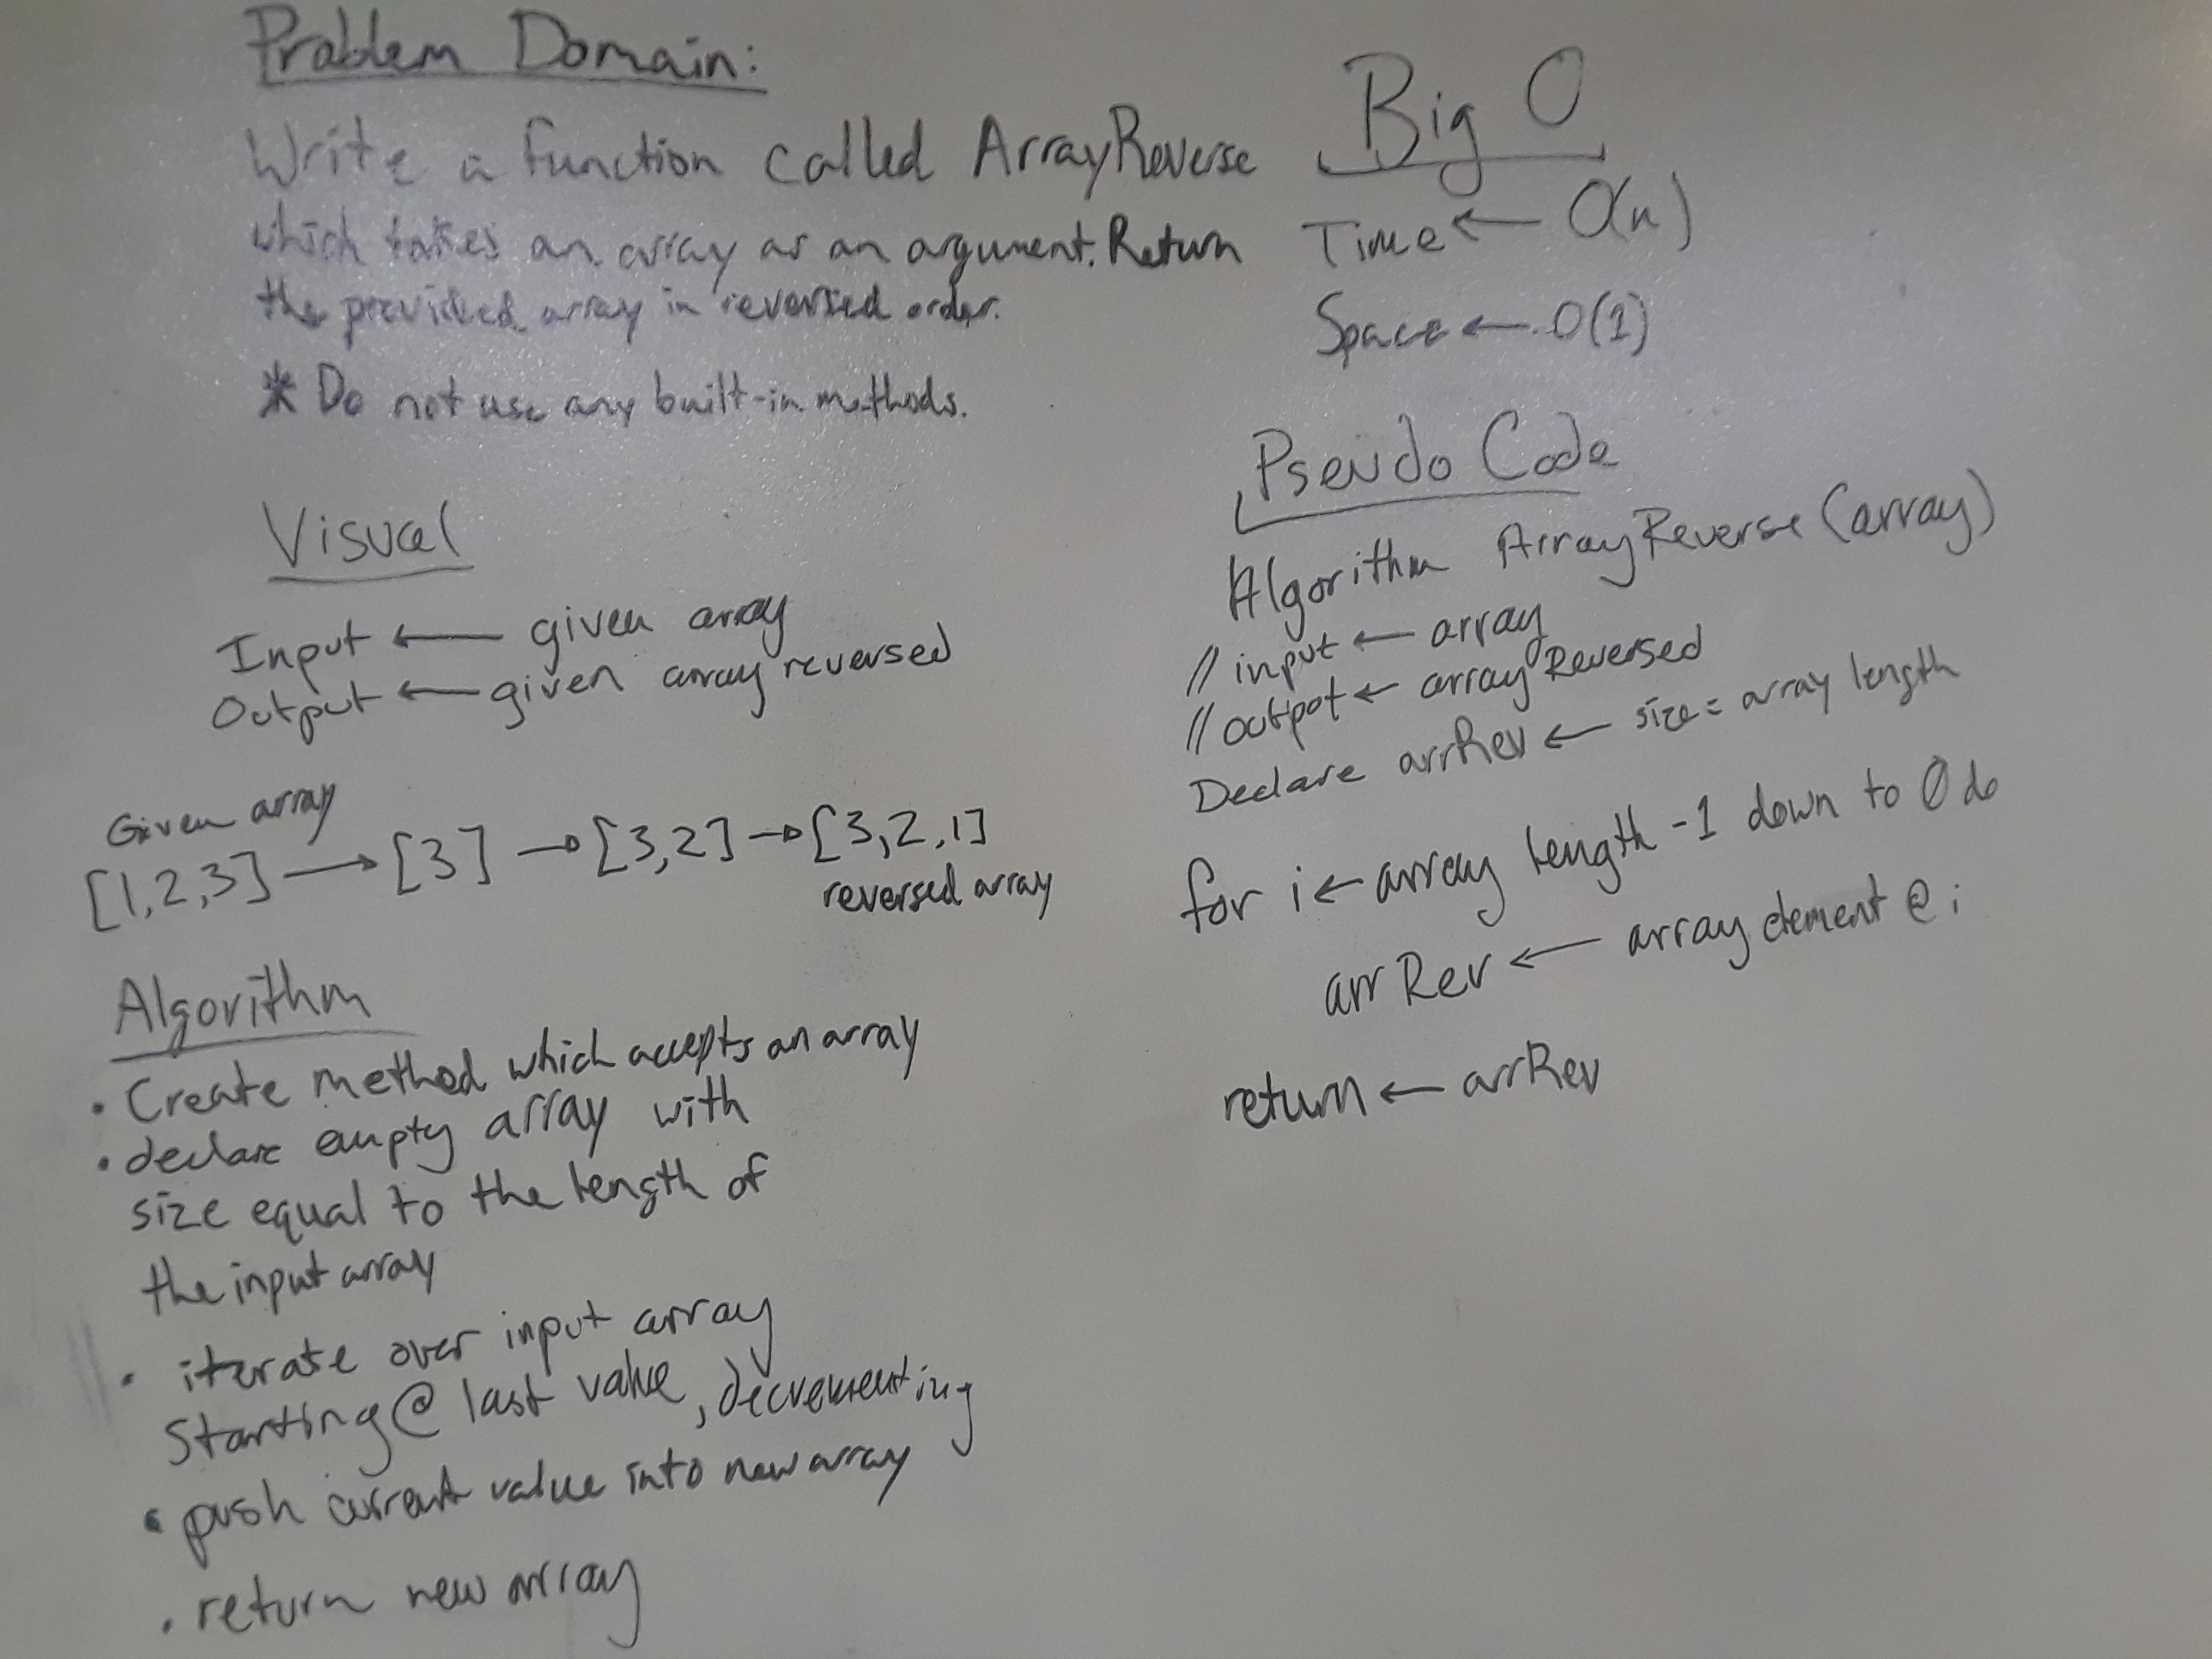 Problem Domain:
Write a function called ArrayReverse
which takes an array as an argument. Return
the provided array in reversed order.
* Do not use any built-in methods.
Visual
Input ← given array
Output ← given array reversed
Given array
[1,2,3] → [3] → [3,2] → [3,2,1]
reversed array
Algorithm
• Create method which accepts an array
• declare empty array with
size equal to the length of
the input array
• iterate over input array
Starting @ last value, decrementing
• push current value into new array
• return new array
Big O
Time ← O(n)
Space ← O(1)
Pseudo Code
Algorithm ArrayReverse (array)
// input ← array
// output ← array Reversed
Declare arrRev ← size = array length
for i ← array length -1 down to 0 do
arrRev ← array element @ i
return ← arrRev